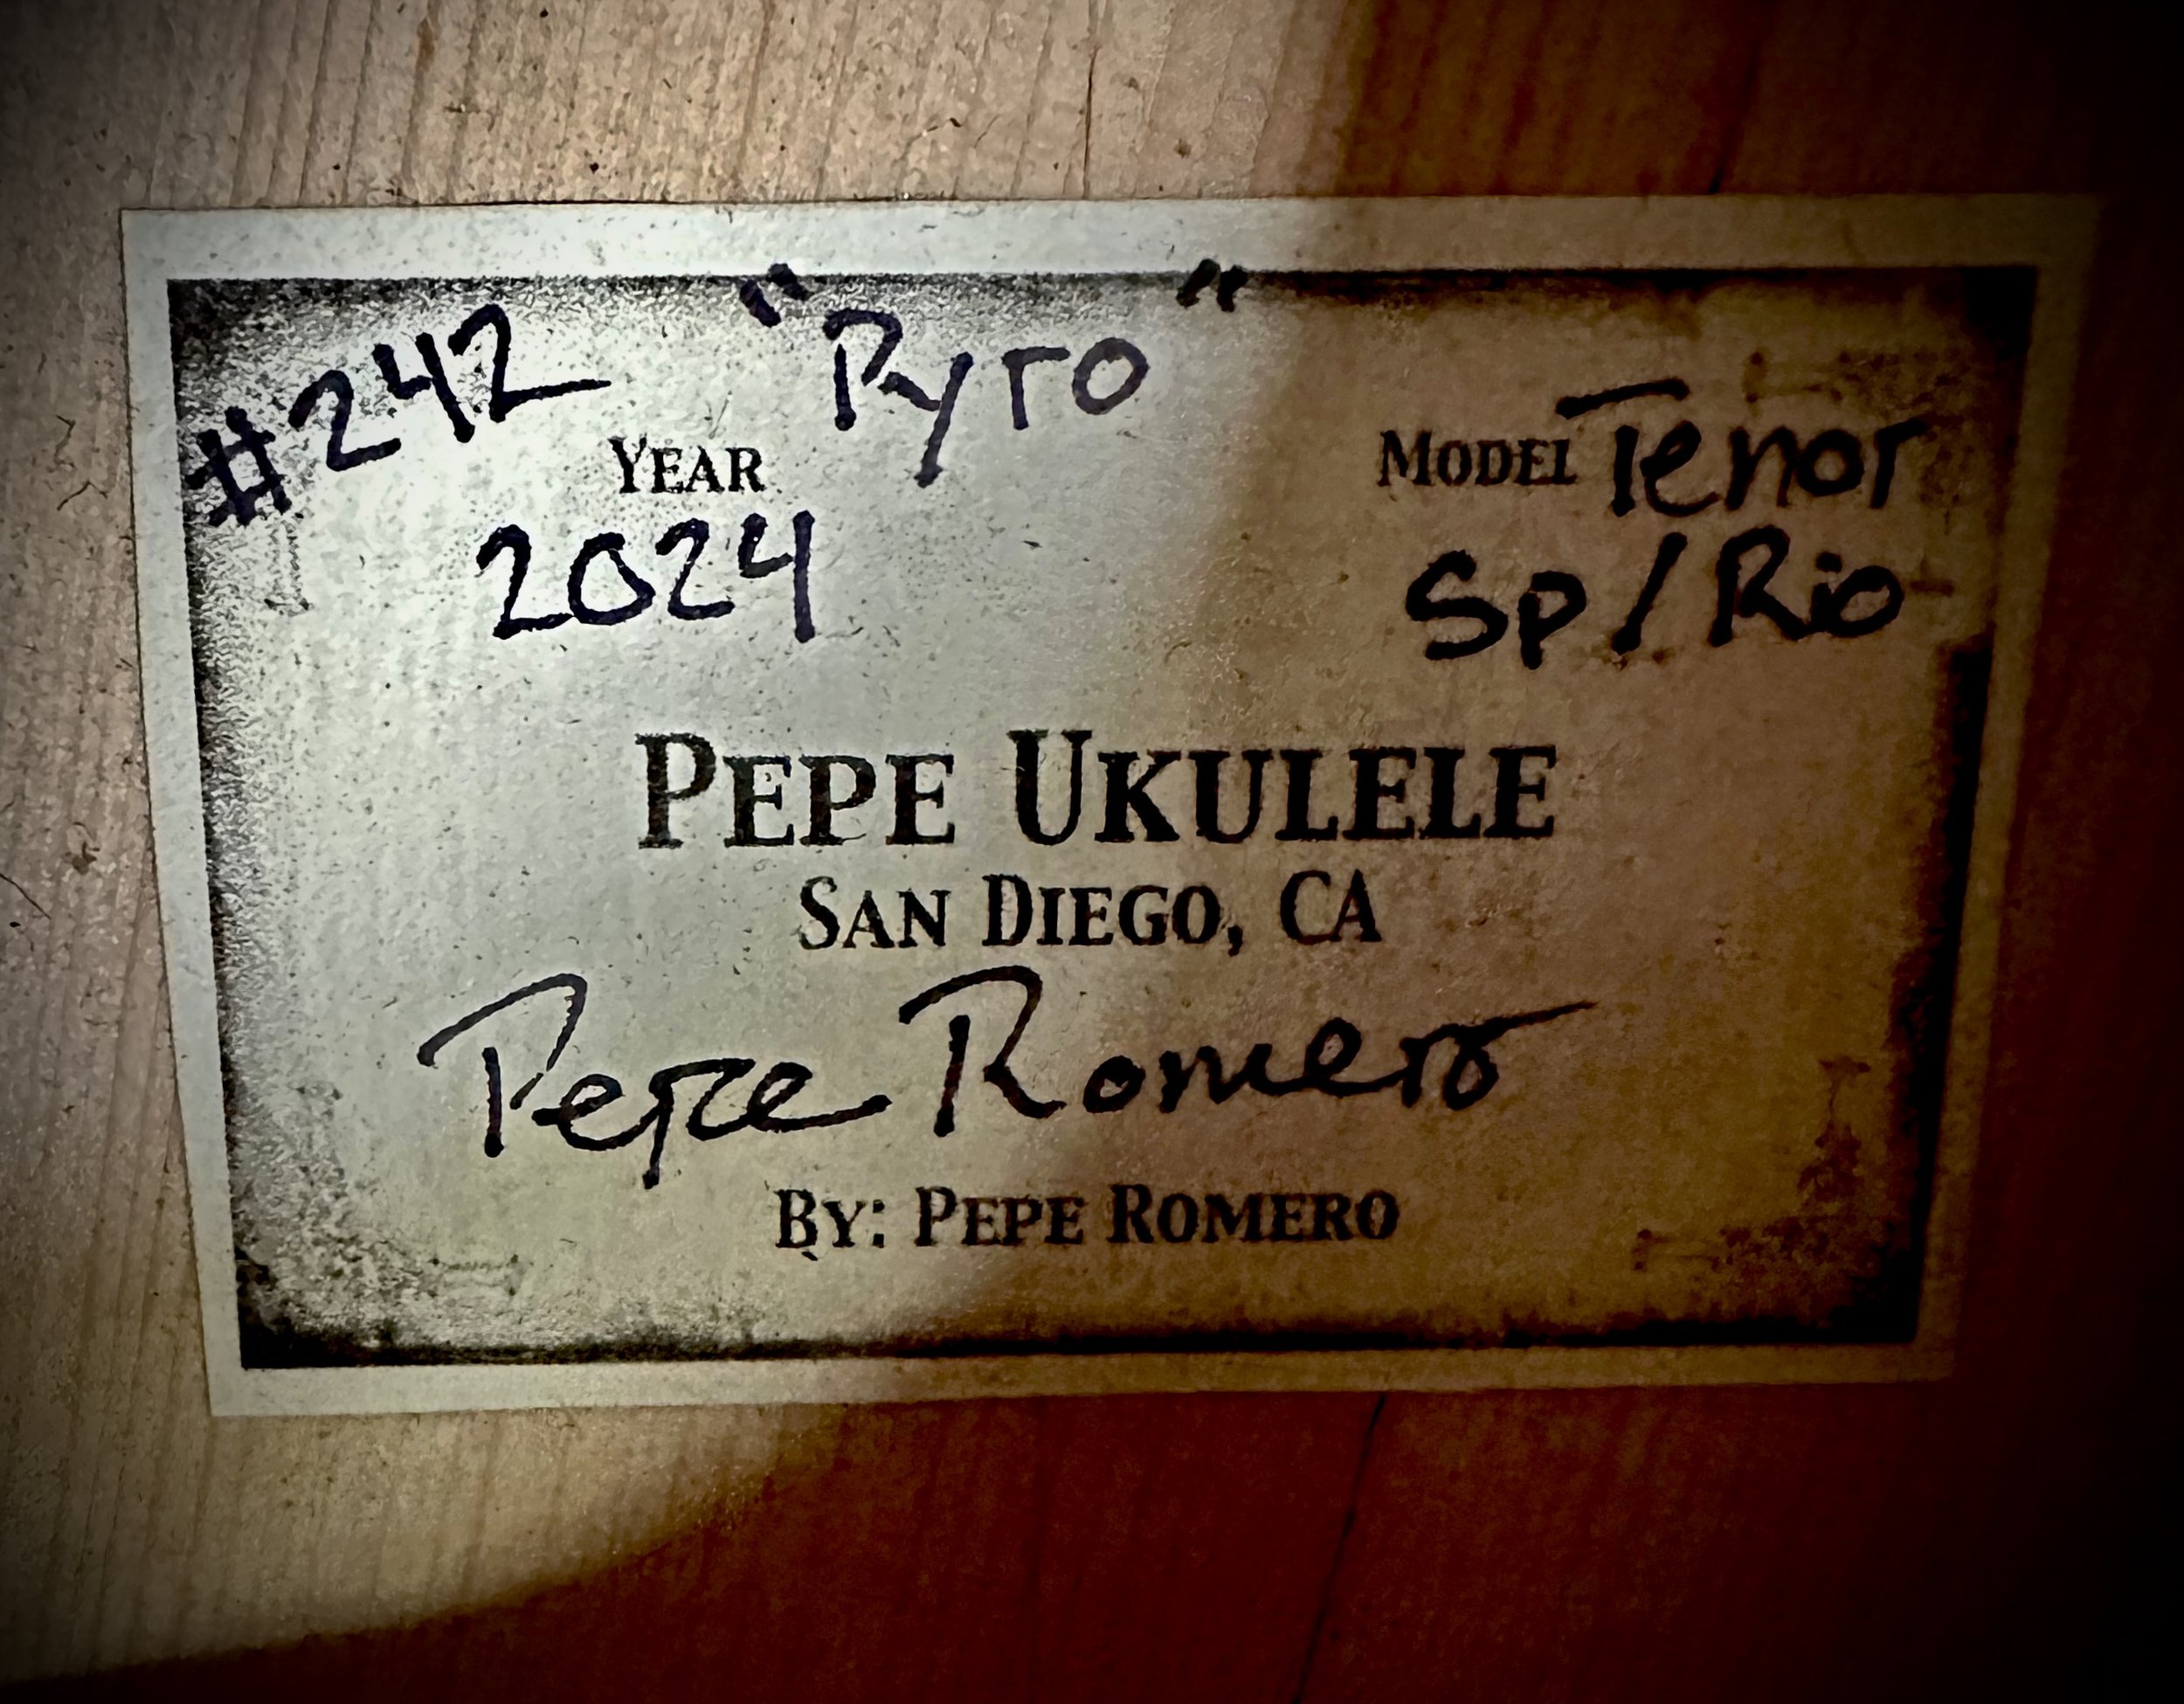 #242 "Pyro"
YEAR MODEL Tenor
2024 Sp/Rio
PEPE UKULELE
SAN DIEGO, CA
Pepe Romero
BY: PEPE ROMERO